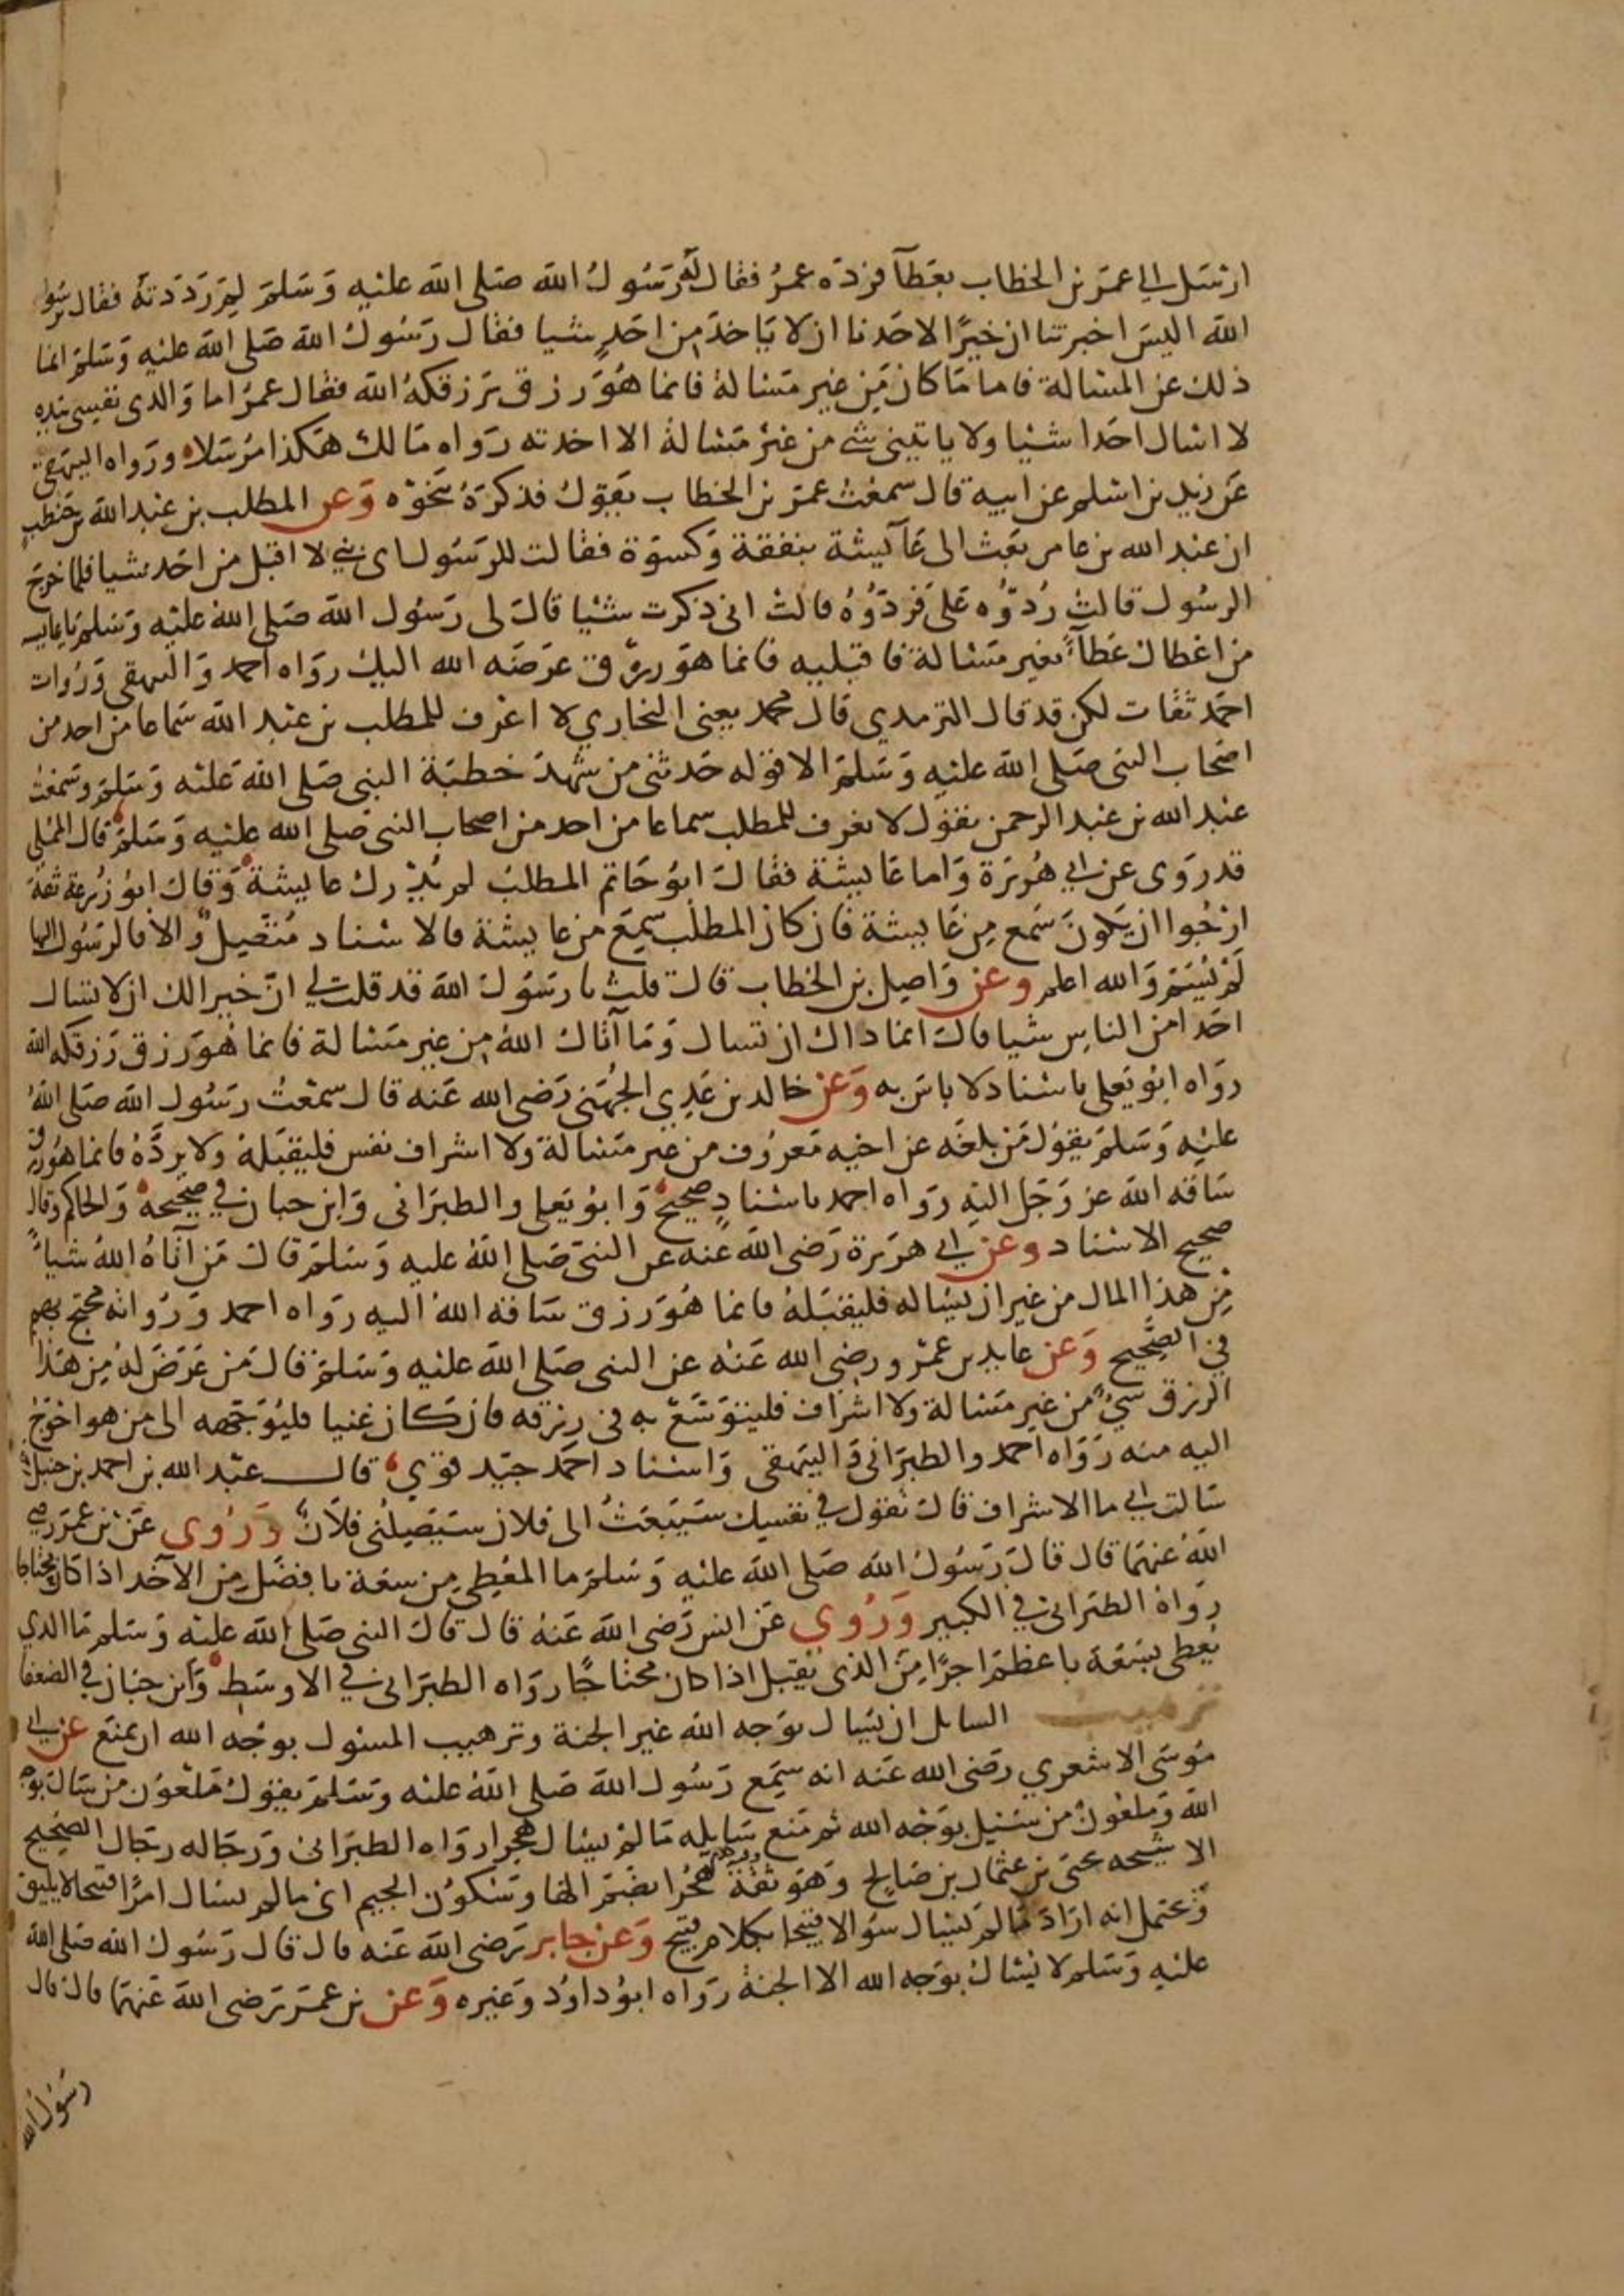 ارسل الى عمر بن الخطاب بعطآ فرده عمر فقال له رسول الله صلى الله عليه وسلم لم رددته فقال يرسول
الله اليس اخبرتنا ان خيرًا لاحدنا ان لا ياخذ من احدٍ شيا فقال رسول الله صلى الله عليه وسلم انما
ذلك عن المسالة فاما ما كان مِن غير مسالة فانما هُوَ رزق يرزقكهُ الله فقال عمرُ اما والذى نفسى بيده
لا اسال احدا شيا ولا ياتينى شى من غير مسالة الا اخدته رواه مالك هكذا مرسلا ورواه البيهقى
عن زيد بن اسلم عن ابيه قال سمعت عمر بن الخطاب يقول فذكره بنحوه وعن المطلب بن عبد الله بن حنطب
ان عبد الله بن عامر بعث الى عآيشة بنفقة وكسوة فقالت للرسول اى بنى لا اقبل من احد شيا فلما خرج
الرسول قالت رُدّوُه على فردّوُهُ قالت انى ذكرت شيا قال لى رسول الله صلى الله عليه وسلم يا عايشه
من اعطاك عطآءً بغير مسالة فاقبليه فانما هو رزق عرضه الله اليك رواه احمد والبيهقى وروات
احمد ثقات لكن قد قال الترمدي قال محمد يعنى البخاري لا اعرف للمطلب بن عبد الله سماعا من احد من
اصحاب النبى صلى الله عليه وسلم الا قوله حدثنى من شهد خطبة النبى صلى الله عليه وسلم وسمعت
عبد الله بن عبد الرحمن يقول لا نعرف للمطلب سماعا من احد من اصحاب النبى صلى الله عليه وسلم قال المملى
قد روى عن ابي هُريرة واما عايشة فقال ابو حاتم المطلب لم يدرك عايشة وقال ابو زرعة ثقة
ارجوا ان يكون سَمع مِن عايشة فان كان المطلب سمِعَ من عايشة فالاسناد متصل والا فالرسول اليها
لم يُسَمَّ والله اعلم وعن واصل بن الخطاب قال قلت يا رسول الله قد قلت لي ان خير الك ان لا تسال
احدا من الناس شيا قال انما داك ان تسال وَما آتاك اللهُ مِن غير مسالة فانما هُوَ رزق رَزقكه الله
رواه ابو يعلى باسناد لا باس به وعن خالد بن عَدِي الجُهَنى رضى الله عنه قال سمعتُ رسول الله صلى اللهُ
عليه وسلم يقول من بلغه عن اخيه معروف من غير مسالة ولا اشراف نفس فليقبله ولا يردّهُ فانما هُوَ رزق
ساقه الله عز وَجَل اليه رواه احمد باسنادٍ صحيح وابو يعلى والطبرانى وابن حبان في صحيحه والحاكم وقال
صحيح الاسناد وعن ابي هريرة رضى الله عنه عن النبى صلى الله عليه وسلم قال مَن آتاهُ اللهُ شياً
مِن هذا المال من غير ان يساله فليقبله فانما هُوَ رزق ساقه اللهُ اليه رواه احمد ورُواته محتج بهم
في الصحيح وعن عايد بن عمرو رضى الله عنه عن النبى صلى الله عليه وسلم قال من عَرَضَ لهُ مِن هذا
الرزق شيءٌ من غير مسالة ولا اشراف فليتوسّعْ به في رزقه فان كان غنيا فليُوَجهه الى من هو احوج
اليه منه رواه احمد والطبرانى والبيهقى واسناد احمد جيد قوي قال عبد الله بن احمد بن حنبل
سالت ابي ما الاشراف قال تقول في نفسِك سَيَبعَثُ الى فلان سيَصِلنى فلانٌ ورُوى عن بن عمر رضى
الله عنهما قال قال رسول الله صلى الله عليه وسلم ما المعطى مِن سعة بافضل من الآخد اذا كان محتاجا
رواه الطبرانى في الكبير ورُوى عن انس رضى الله عنه قال قال النبى صلى الله عليه وسلم ما الدي
يُعطى بسعة باعظم اجرًا مِنَ الذى يقبل اذا كان محتاجًا رواه الطبرانى في الاوسط وابن حبان في الضعفا
ترهيب السايل ان يسال بوجه الله غير الجنة وترهيب المسئول بوجه الله ان يمنع عن ابي
موسى الاشعري رضى الله عنه انه سمِع رسول الله صلى الله عليه وسلم يقول ملعُون من سال بوجه
الله وملعون من سئيل بوجه الله ثم منع سايله ما لم يسال هجرا رواه الطبرانى ورجاله رجال الصحيح
الا شيخه يحيى بن عثمان بن صالح وهو ثقة هُجْرًا بضم الها وسكون الجيم اى ما لم يسال امرًا قبيحا لا يليق
ويحتمل انه اراد ما لم يسال سؤالا قبيحا بكلام قبيح وعن جابر رضى الله عنه قال قال رسول الله صلى الله
عليه وسلم لا يسال بوجه الله الا الجنة رواه ابو داوُد وغيره وعن بن عمر رضى الله عنهما قال قال
رسول الله